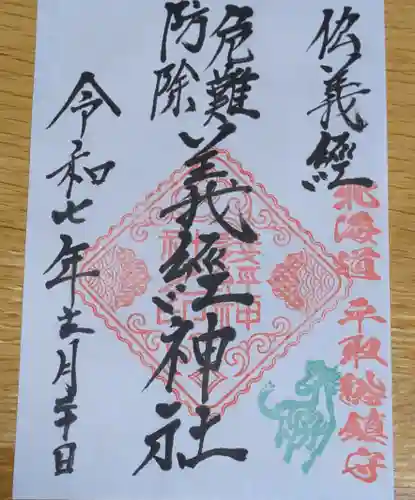 佐義經
北海道平取総鎮守
危難
防除
義經神社
令和七年十一月二十日